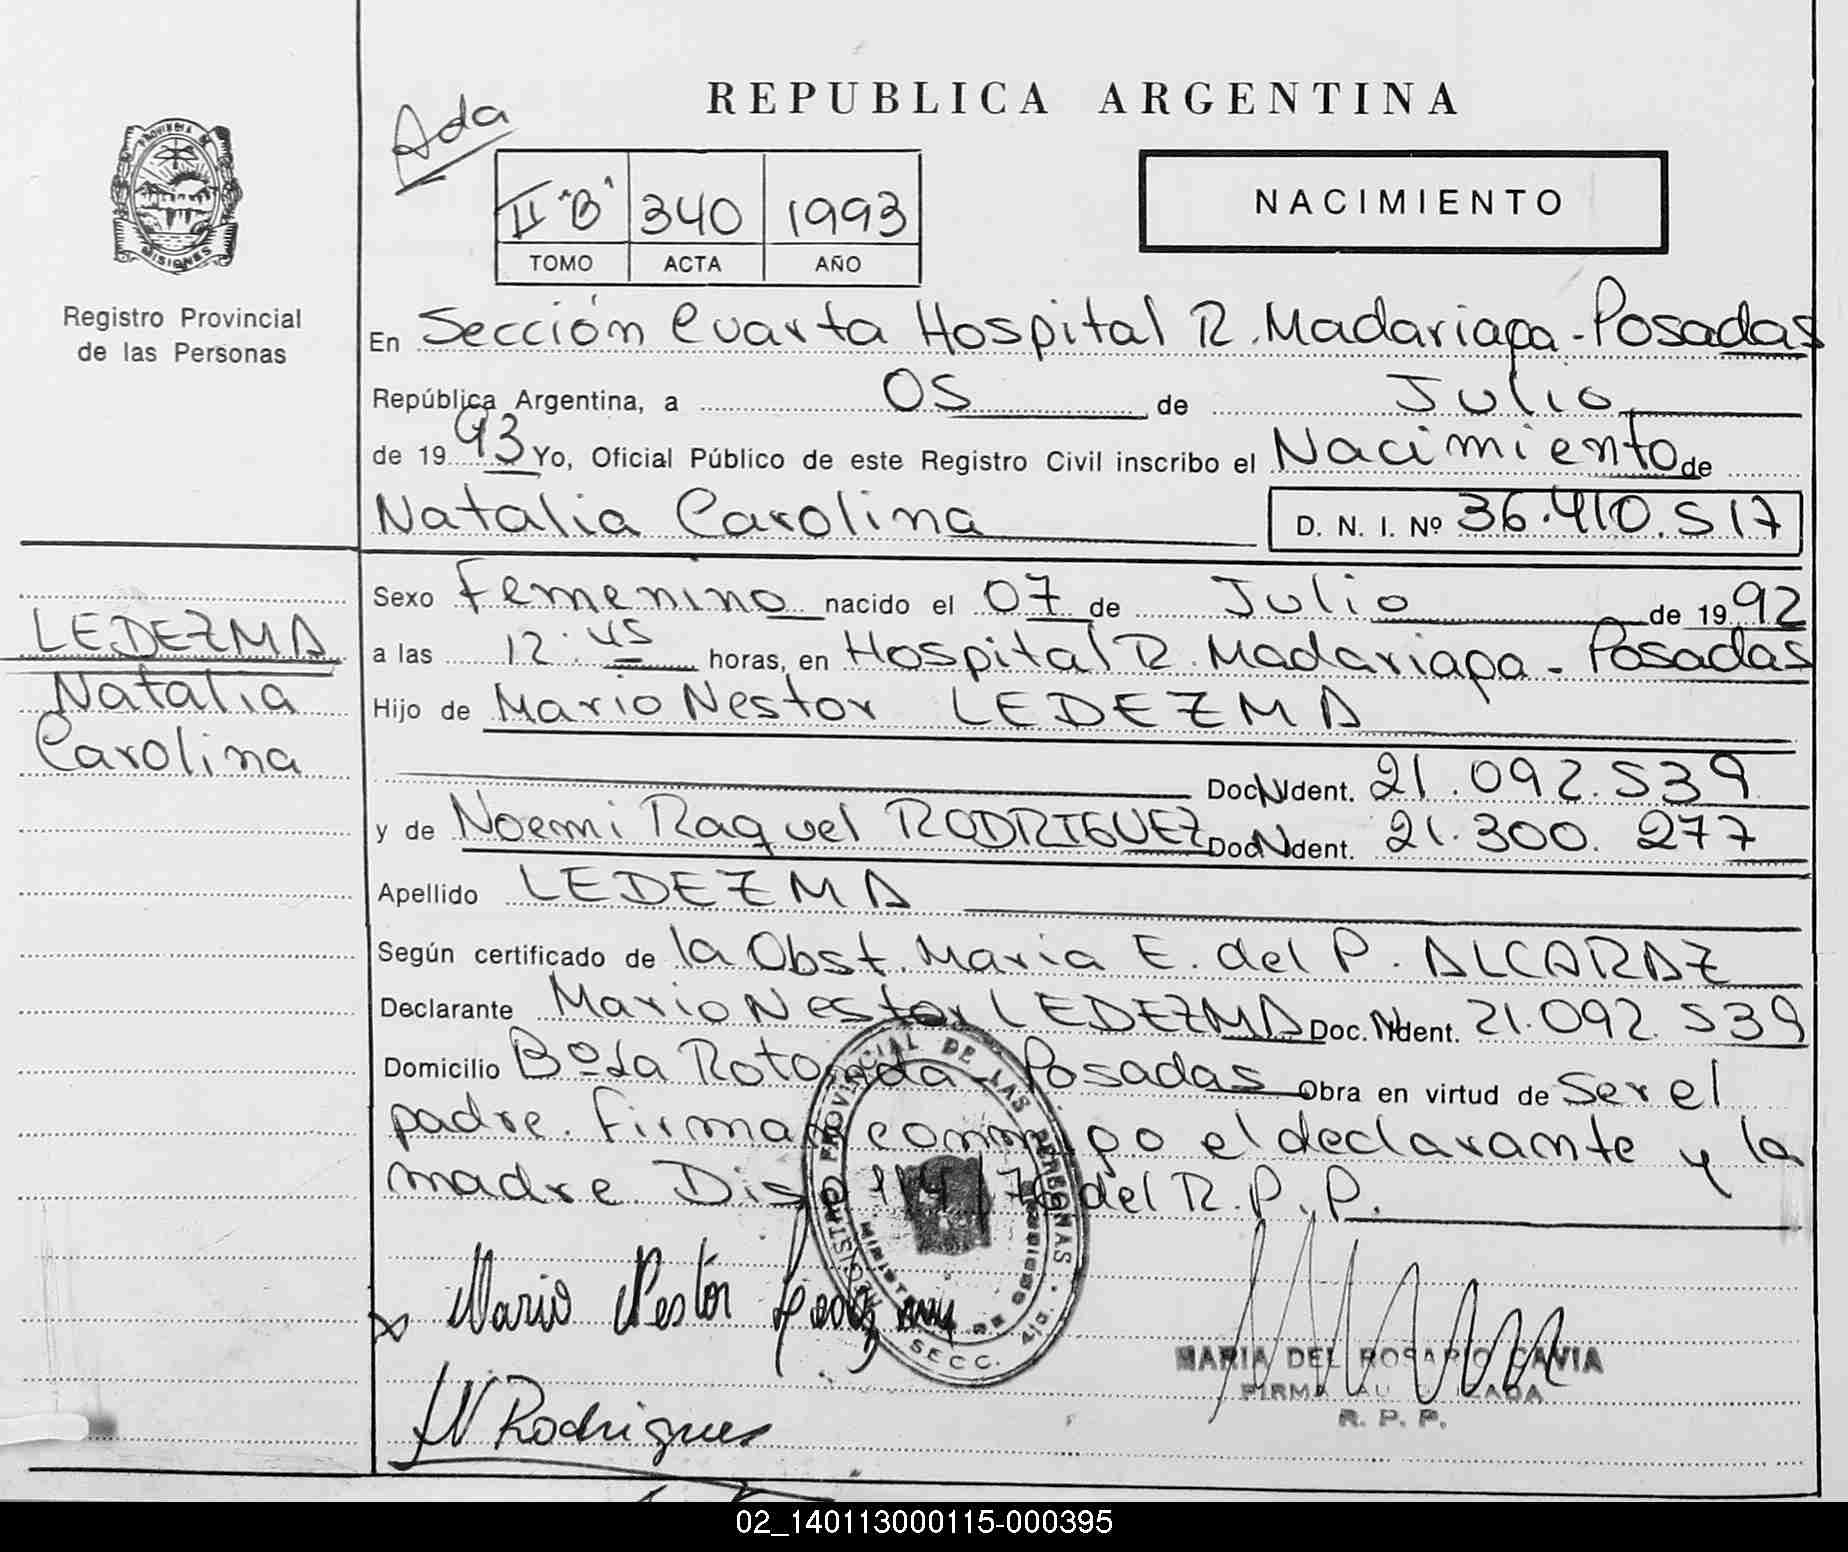 REPUBLICA ARGENTINA
Ada
PROVINCIA DE
MISIONES
II "B" 340 1993
TOMO ACTA AÑO
NACIMIENTO
Registro Provincial
de las Personas
En Sección Cuarta Hospital R. Madariaga - Posadas
República Argentina, a 05 de Julio
de 1993 Yo, Oficial Público de este Registro Civil inscribo el Nacimiento de
Natalia Carolina D. N. I. Nº 36.410.517
LEDEZMA
Natalia
Carolina
Sexo Femenino nacido el 07 de Julio de 1992
a las 12:45 horas, en Hospital R. Madariaga - Posadas
Hijo de Mario Nestor LEDEZMA
Doc. N Ident. 21.092.539
y de Noemi Raquel RODRIGUEZ Doc. N Ident. 21.300.277
Apellido LEDEZMA
Según certificado de la Obst. Maria E. del P. ALCARAZ
Declarante Mario Nestor LEDEZMA Doc. N Ident. 21.092.539
Domicilio Bº La Rotonda - Posadas Obra en virtud de Ser el
padre. Firman conmigo el declarante y la
madre Disp 114/76 del R.P.P.
REGISTRO PROVINCIAL DE LAS PERSONAS
MISIONES
SECC. 4ta.
Mario Nestór Ledezma
N Rodrigues
MARIA DEL ROSARIO GAVIA
FIRMA AUTORIZADA
R. P. P.
02_140113000115-000395